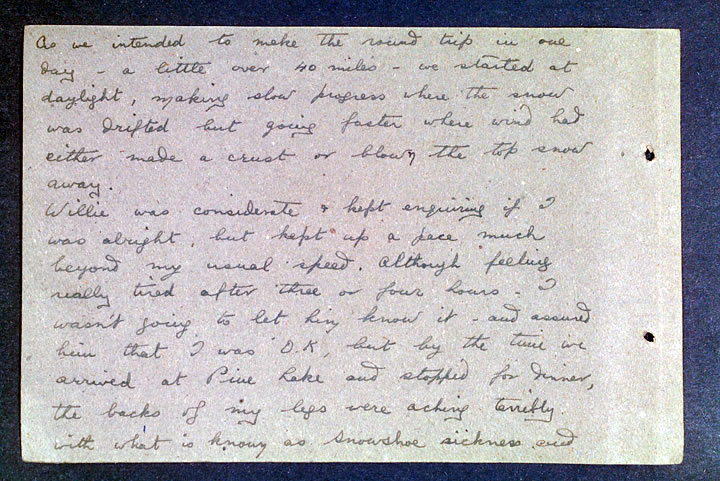 As we intended to make the round trip in one
day - a little over 40 miles - we started at
daylight, making slow progress where the snow
was drifted but going faster where wind had
either made a crust or blown the top snow
away.
Willie was considerate & kept enquiring if I
was alright, but kept up a pace much
beyond my usual speed. Although feeling
really tired after three or four hours - I
wasn't going to let him know it - and assured
him that I was O.K, but by the time we
arrived at Pine Lake and stopped for dinner,
the backs of my legs were aching terribly
with what is known as snowshoe sickness and